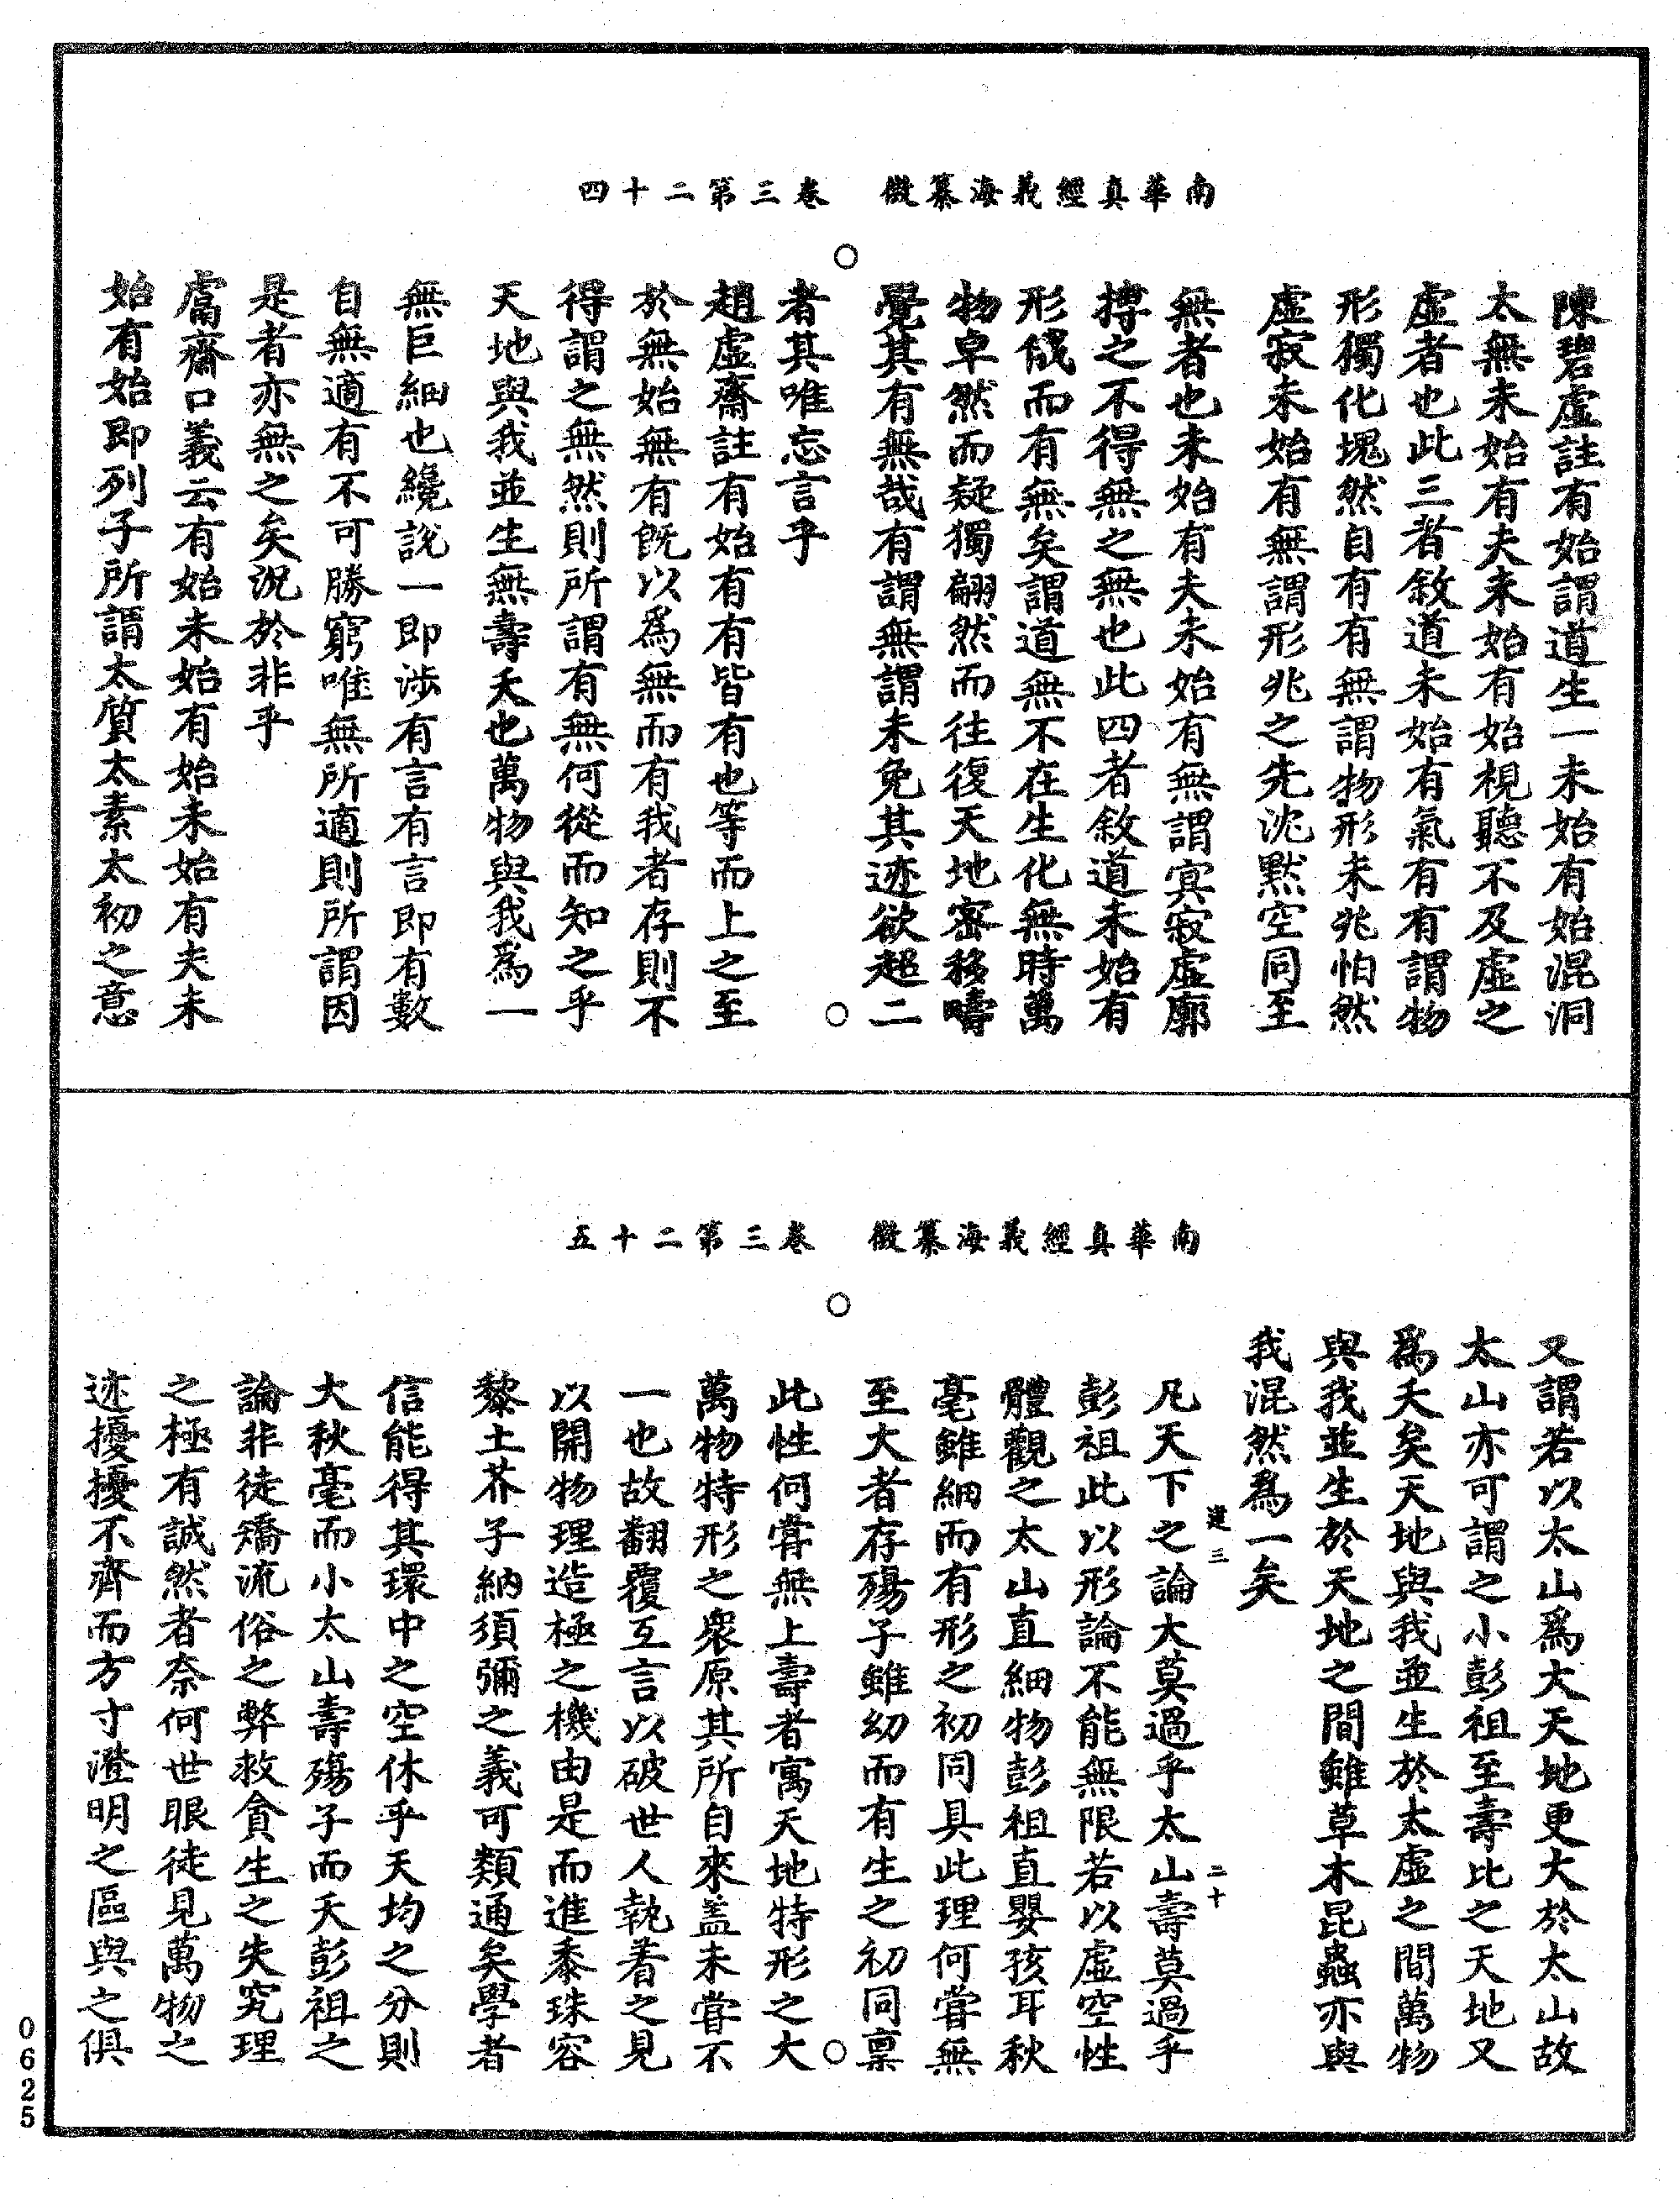 南華真經義海纂微　卷三第二十四
陳碧虛註有始謂道生一未始有始混洞
太無未始有夫未始有始視聽不及虛之
虛者也此三者敘道未始有氣有有謂物
形獨化塊然自有有無謂物形未兆怕然
虛寂未始有無謂形兆之先沈默空同至
無者也未始有夫未始有無謂寞寂虛廓
搏之不得無之無也此四者敘道未始有
形俄而有無矣謂道無不在生化無時萬
物卓然而疑獨翩然而往復天地密移疇
覺其有無哉有謂無謂未免其迹欲超二
者其唯忘言乎
趙虛齋註有始有有皆有也等而上之至
於無始無有既以為無而有我者存則不
得謂之無然則所謂有無何從而知之乎
天地與我並生無壽夭也萬物與我為一
無巨細也纔說一即涉有言有言即有數
自無適有不可勝窮唯無所適則所謂因
是者亦無之矣況於非乎
鬳齋口義云有始未始有始未始有夫未
始有始即列子所謂太質太素太初之意
南華真經義海纂微　卷三第二十五
又謂若以太山為大天地更大於太山故
太山亦可謂之小彭祖至壽比之天地又
為夭矣天地與我並生於太虛之間萬物
與我並生於天地之間雖草木昆蟲亦與
我混然為一矣
凡天下之論大莫過乎太山壽莫過乎
彭祖此以形論不能無限若以虛空性
體觀之太山直細物彭祖直嬰孩耳秋
毫雖細而有形之初同具此理何嘗無
至大者存殤子雖幼而有生之初同稟
此性何嘗無上壽者寓天地特形之大
萬物特形之衆原其所自來蓋未嘗不
一也故翻覆互言以破世人執著之見
以開物理造極之機由是而進黍珠容
黎土芥子納須彌之義可類通矣學者
信能得其環中之空休乎天均之分則
大秋毫而小太山壽殤子而夭彭祖之
論非徒矯流俗之弊救貪生之失究理
之極有誠然者奈何世眼徒見萬物之
迹擾擾不齊而方寸澄明之區與之俱
建三
二十
0625